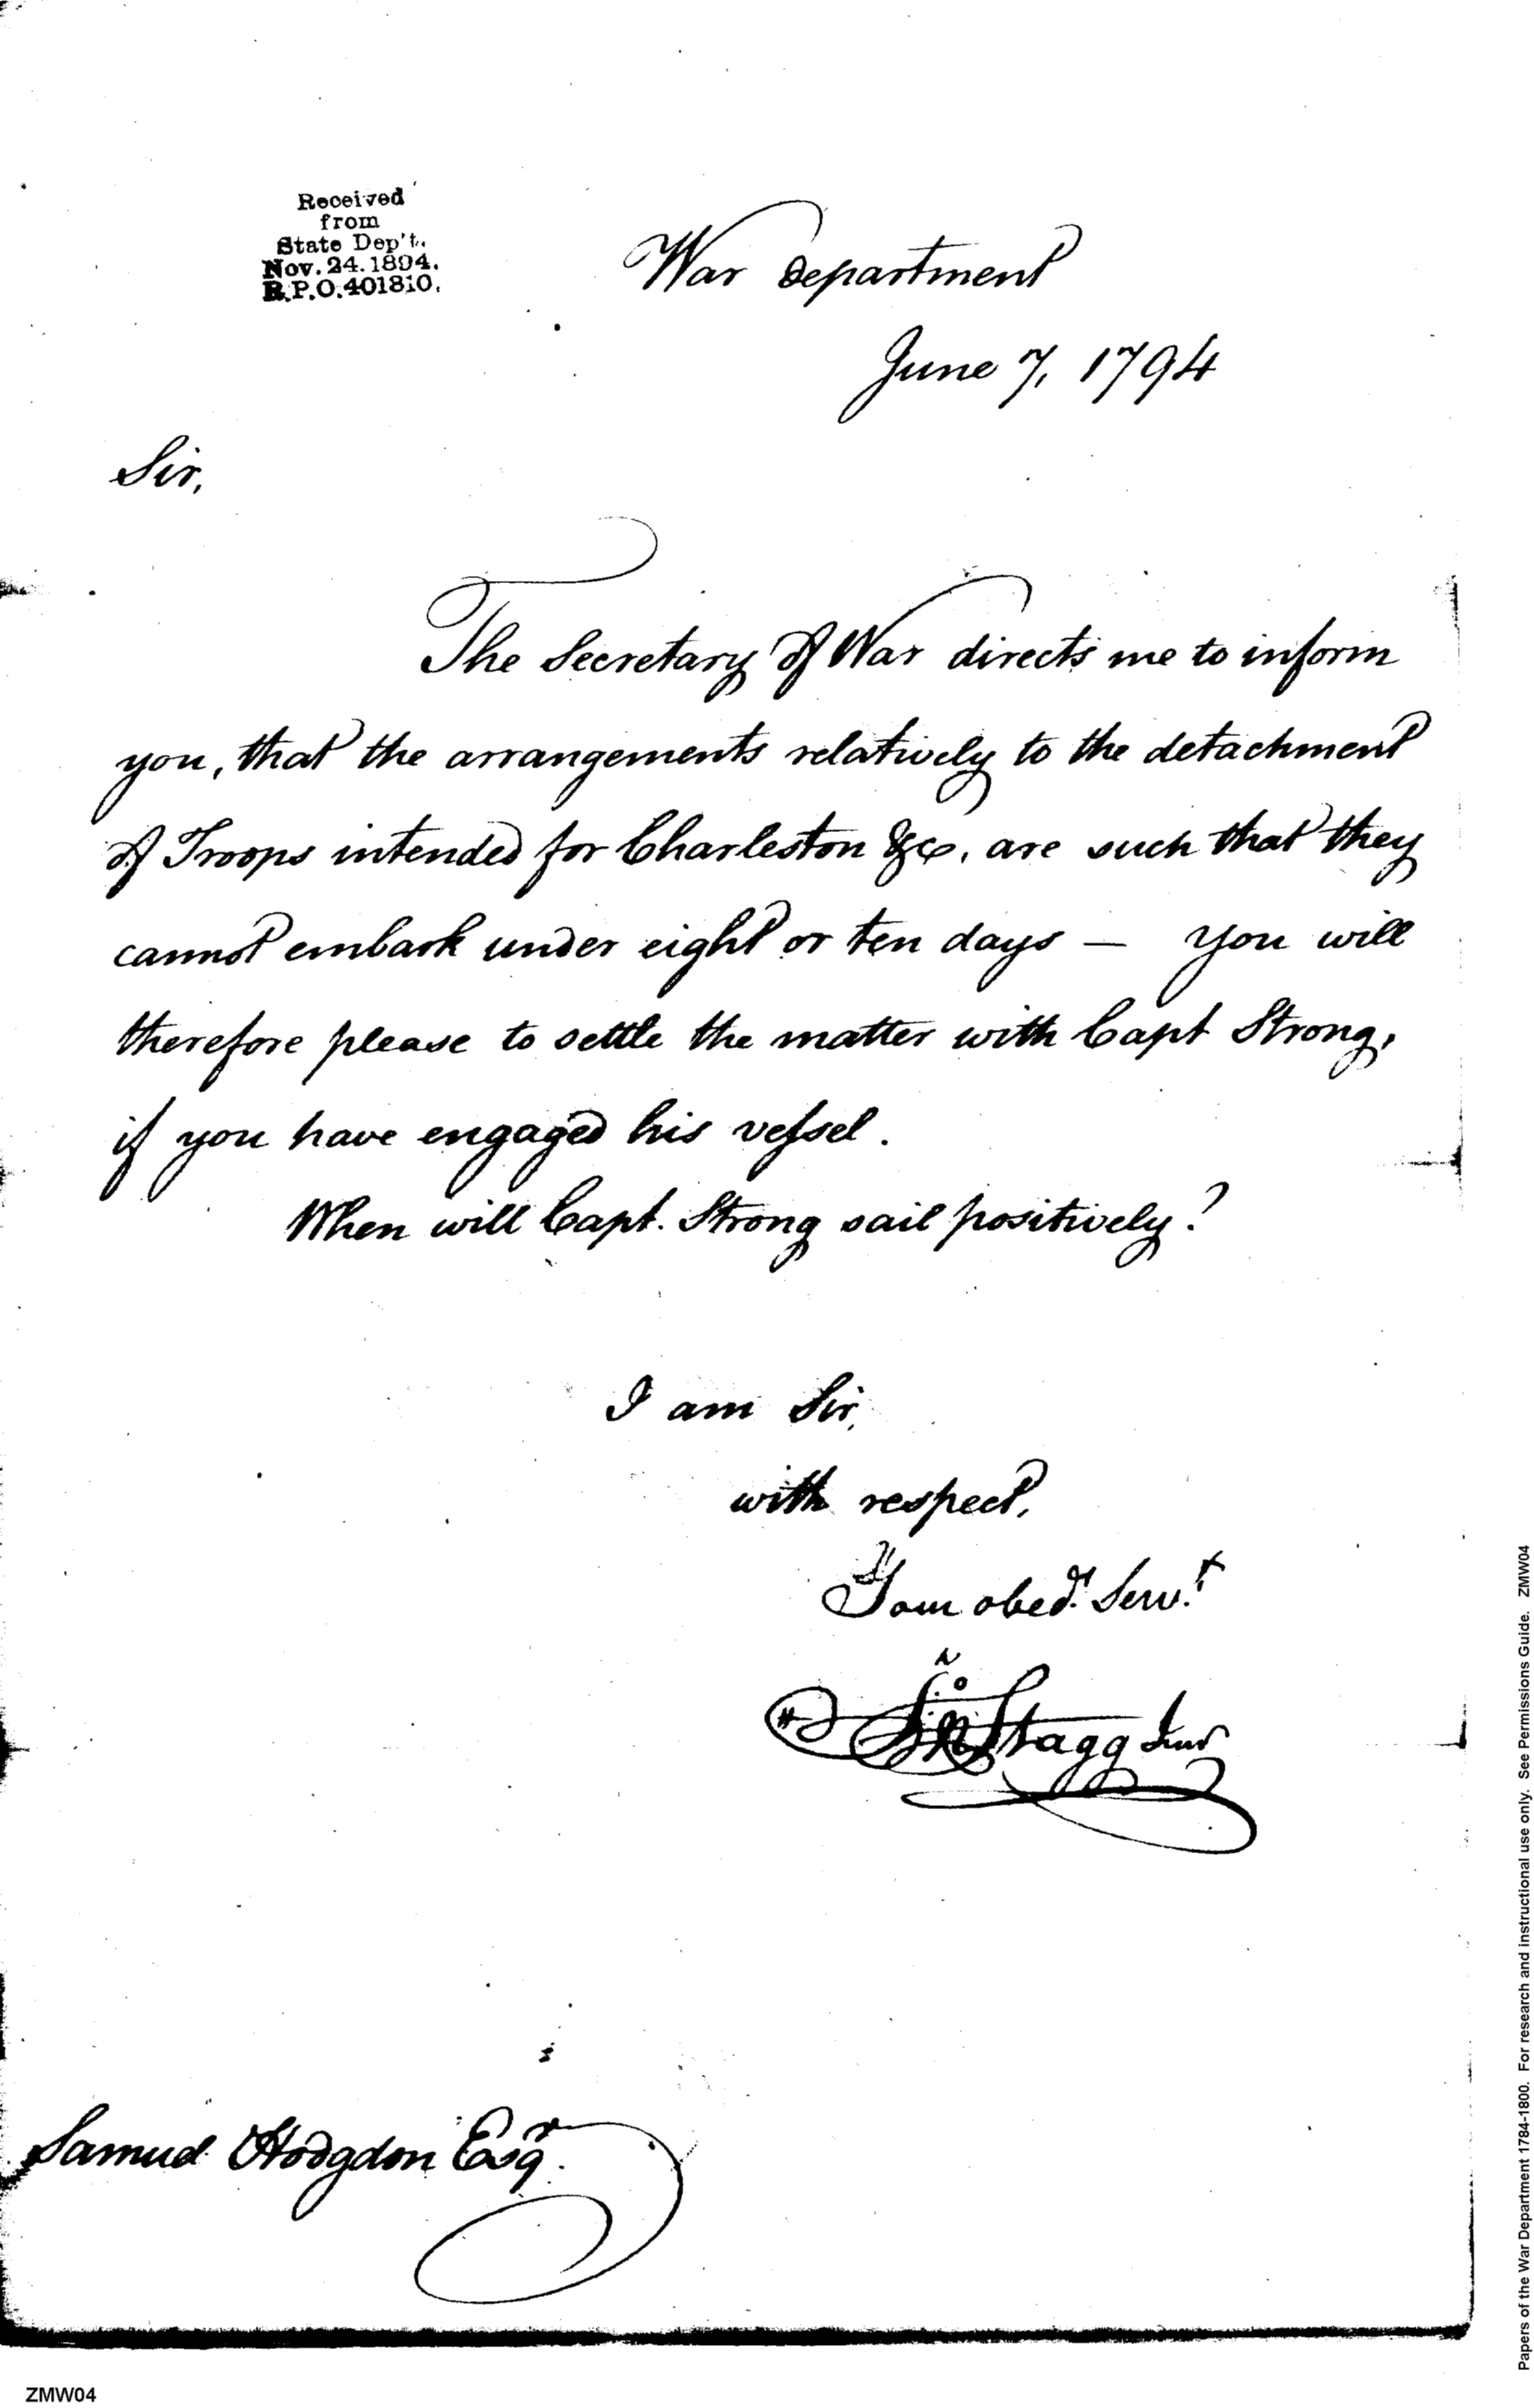 Received
from
State Dep't.
Nov. 24. 1894.
R.P.O. 401810.
War department
June 7, 1794
Sir,
The Secretary of War directs me to inform
you, that the arrangements relatively to the detachment
of Troops intended for Charleston &c, are such that they
cannot embark under eight or ten days — you will
therefore please to settle the matter with Capt Strong,
if you have engaged his vessel.
When will Capt. Strong sail positively?
I am Sir,
with respect,
Your obedt. Servt.
Jno Stagg Junr
Samuel Hodgdon Esqr.
Papers of the War Department 1784-1800. For research and instructional use only. See Permissions Guide. ZMW04
ZMW04